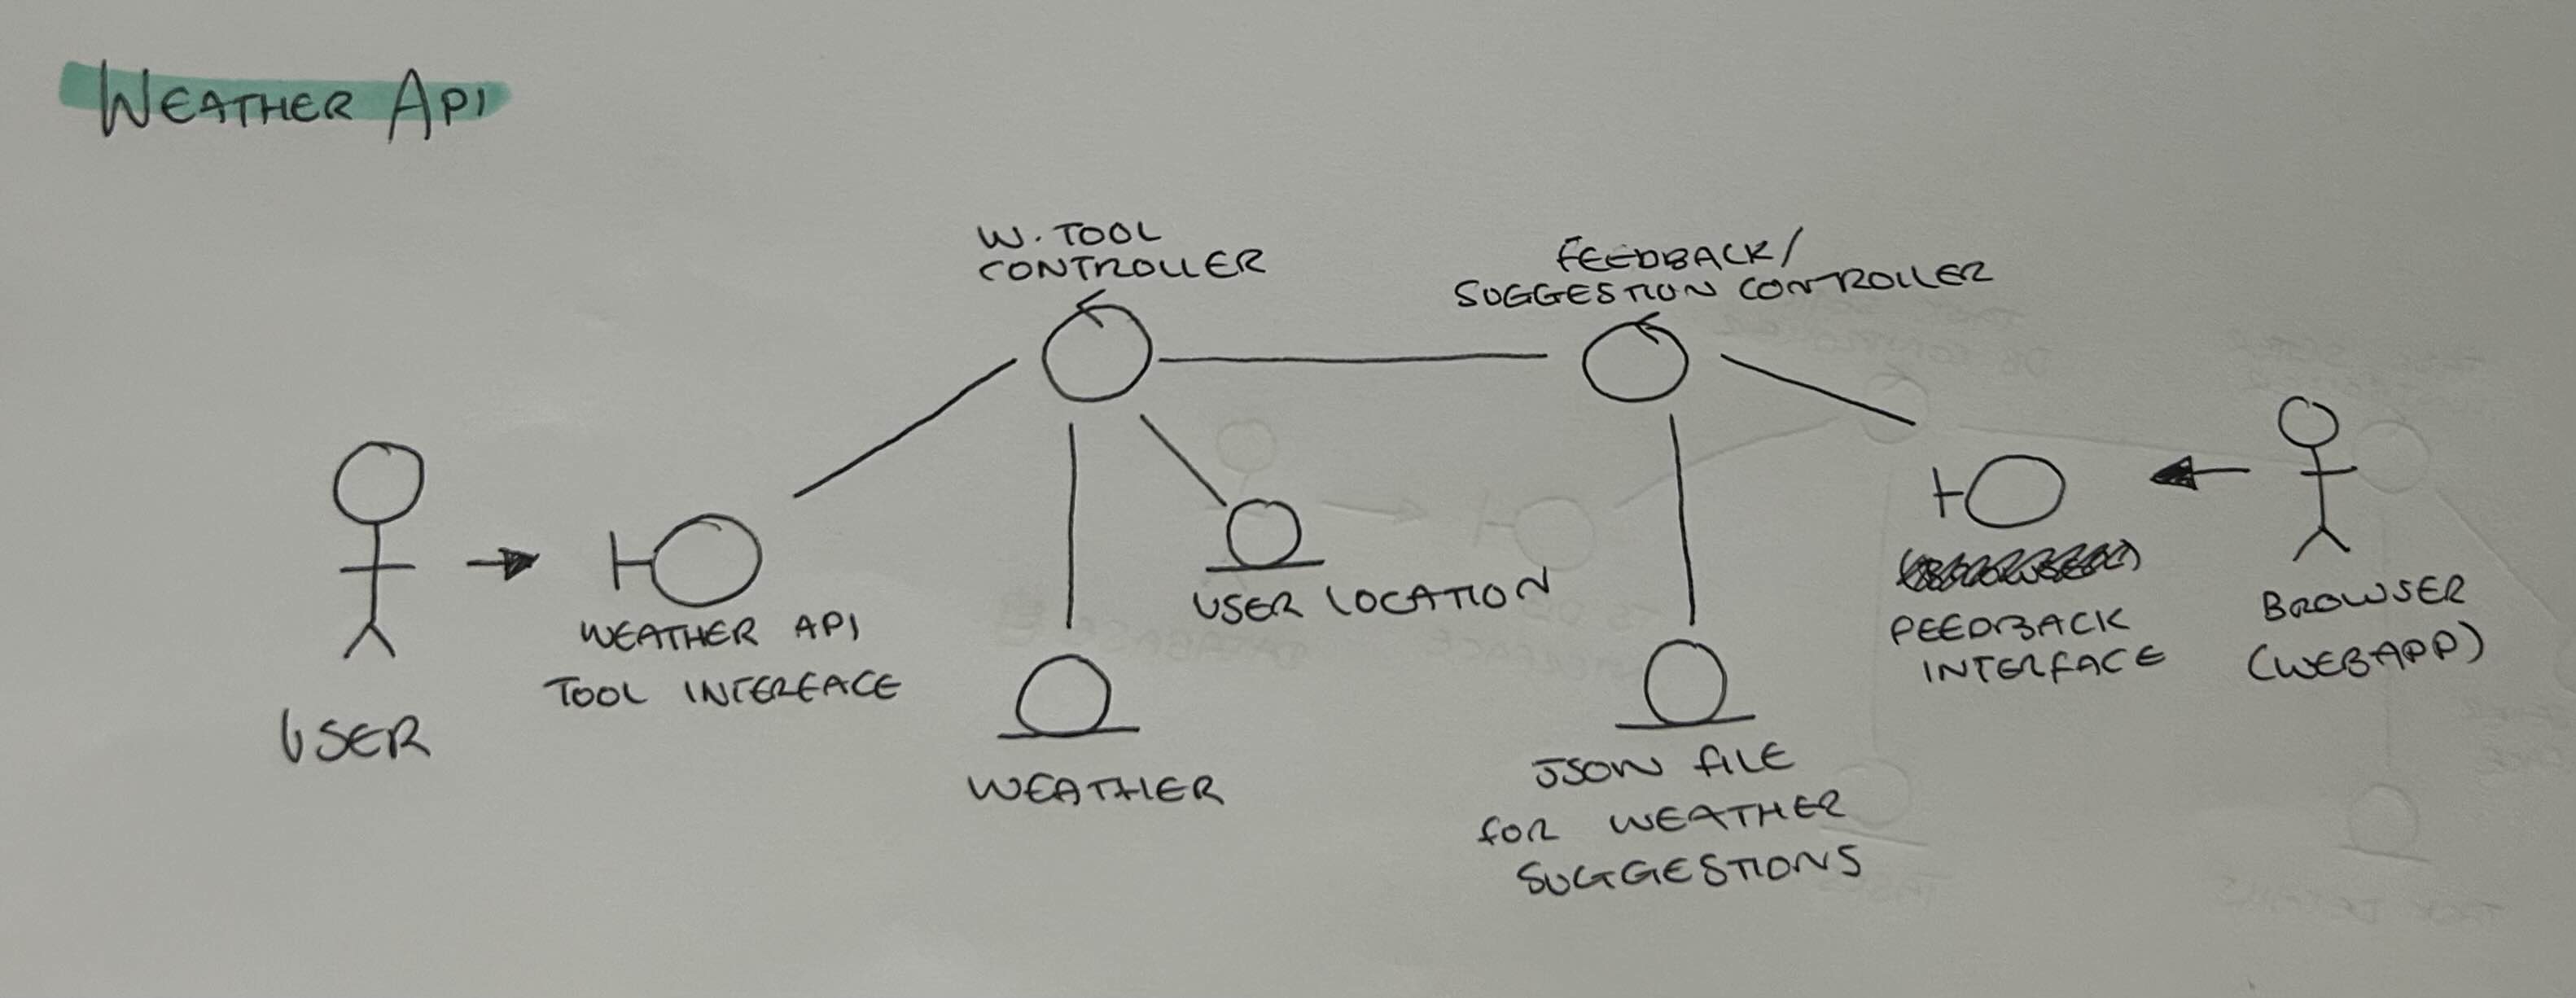 WEATHER API
W. TOOL
CONTROLLER
FEEDBACK/
SUGGESTION CONTROLLER
USER
WEATHER API
TOOL INTERFACE
USER LOCATION
WEATHER
JSON FILE
FOR WEATHER
SUGGESTIONS
FEEDBACK
INTERFACE
BROWSER
(WEBAPP)